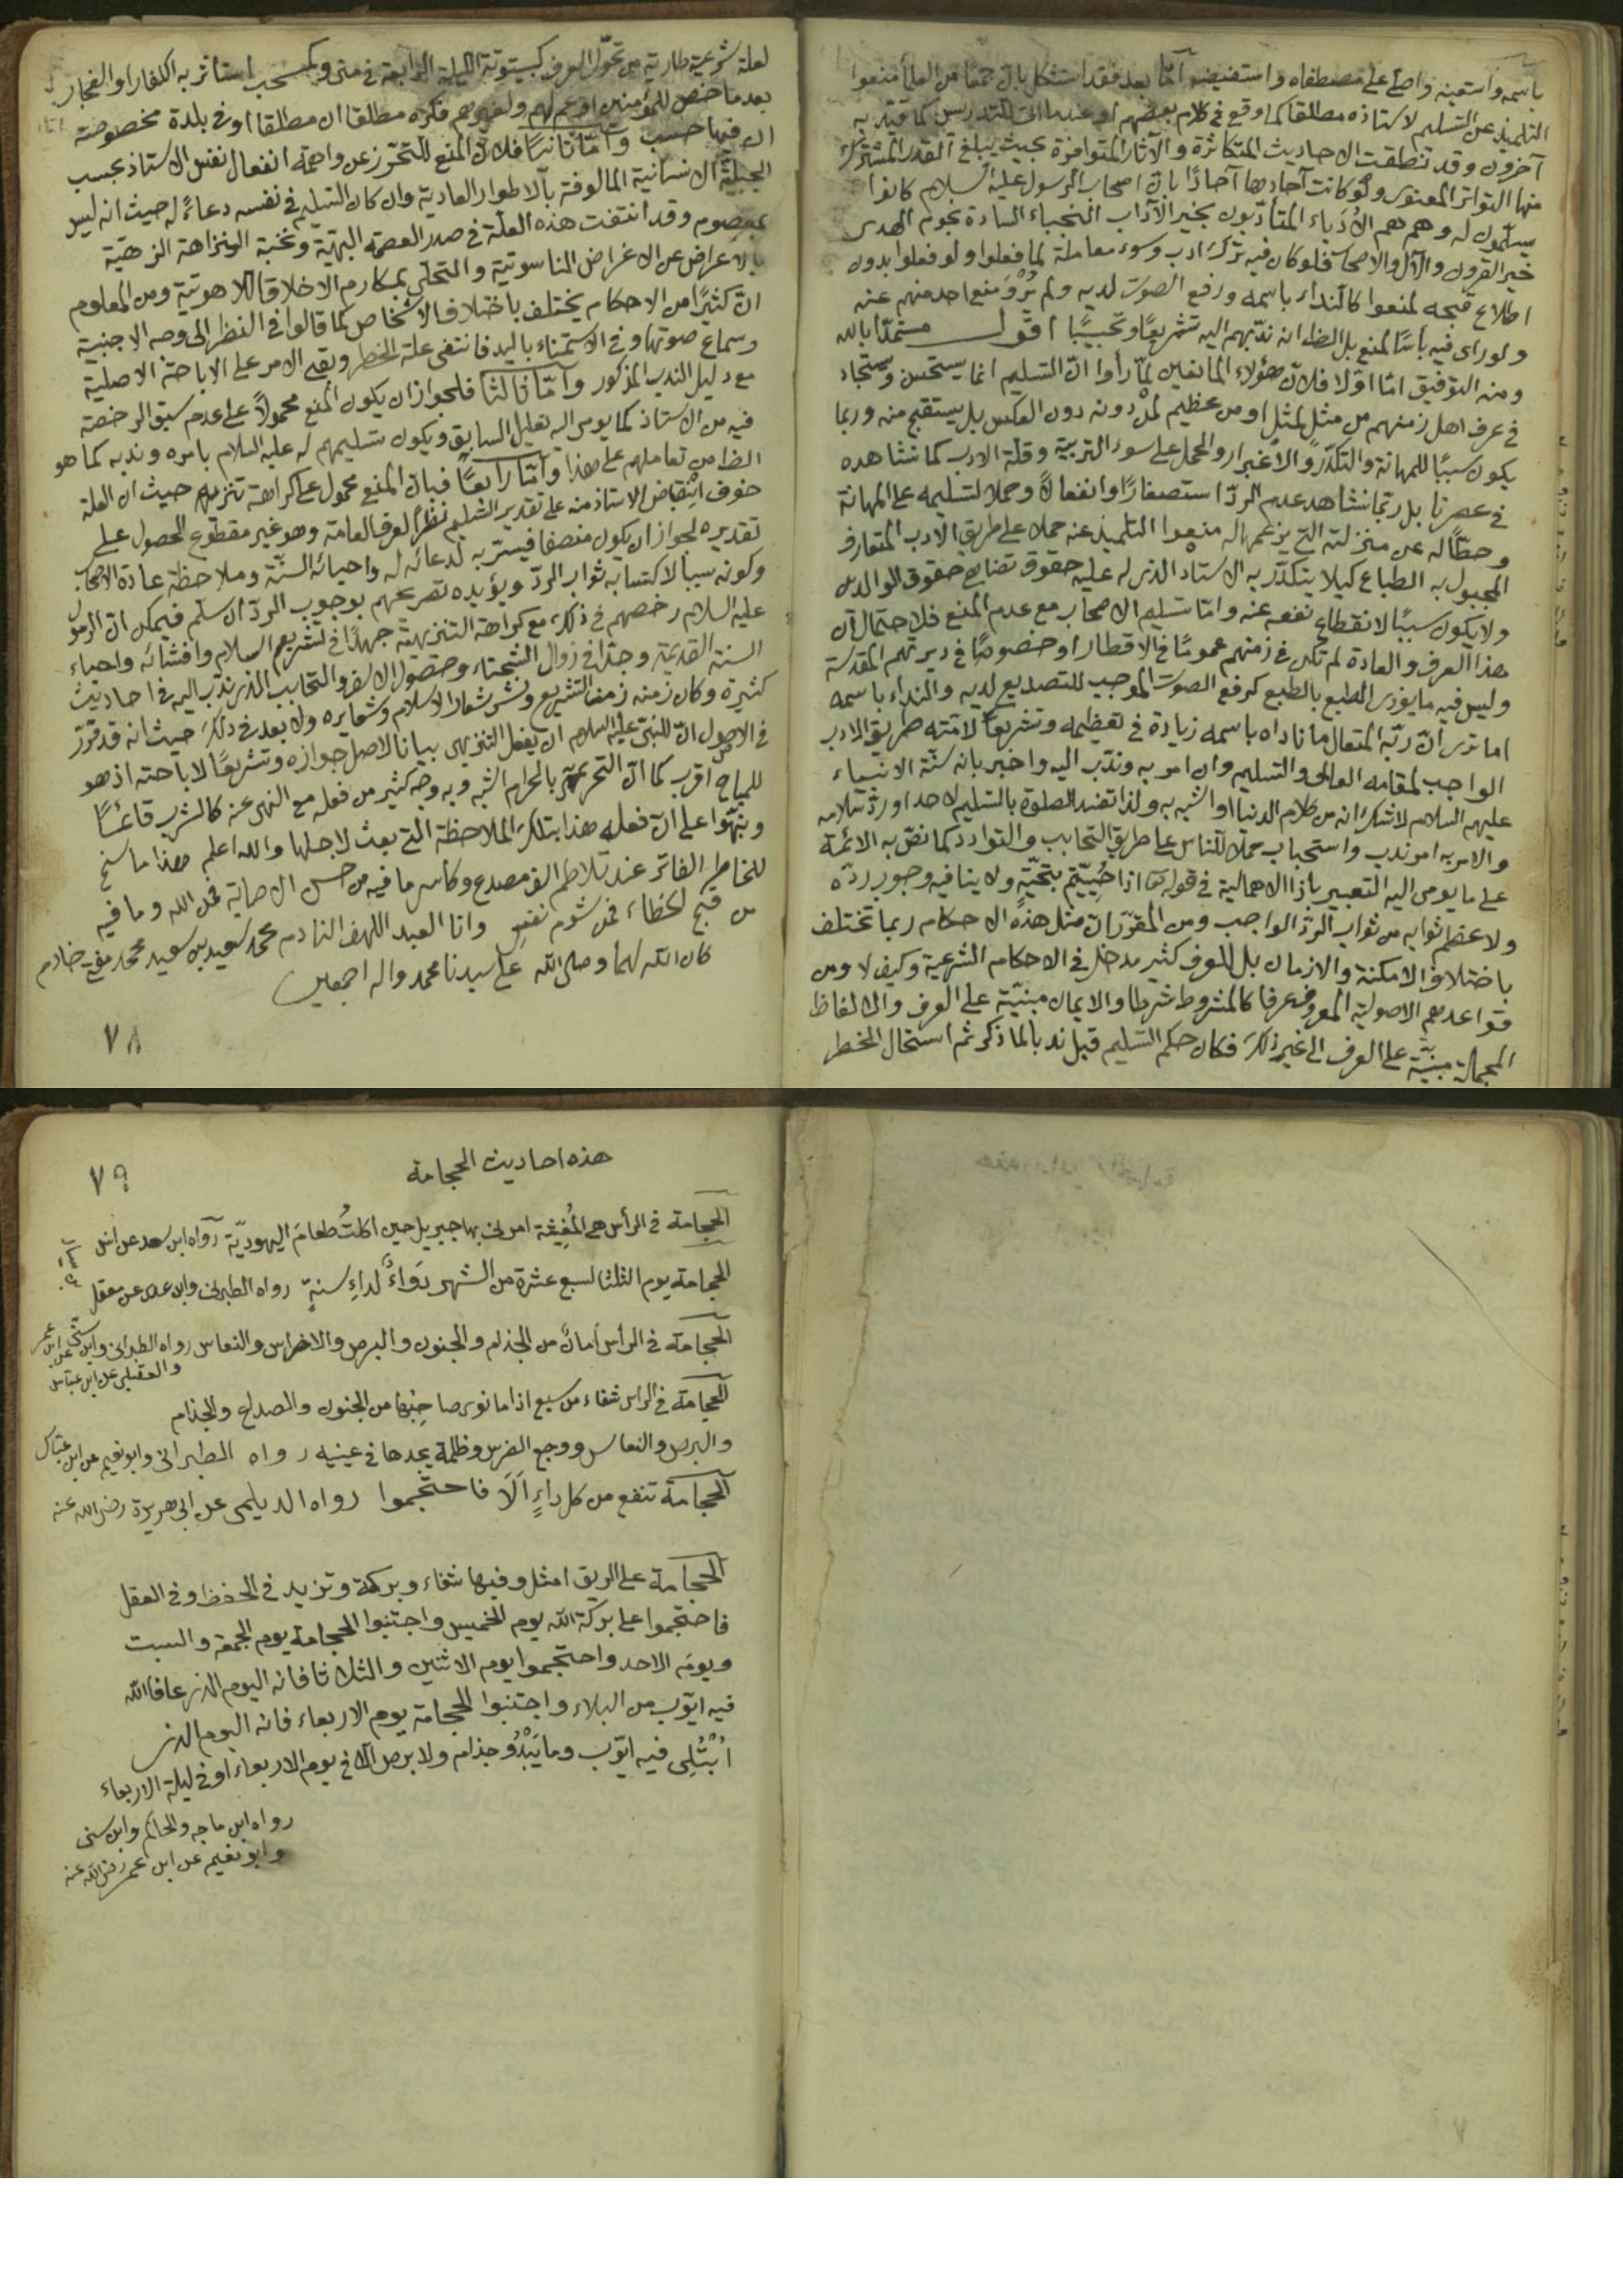 باسمه واستعينه واصلى على مصطفاه واستفيضه اما بعد فقد استشكل بان جمعا من العلماء منعوا
التلميذ عن التسليم لاستاذه مطلقا كما وقع فى كلام بعضهم او عند التدريس كما قيد به
آخرون وقد نطقت الاحاديث المتكاثرة والآثار المتوافرة بحيث يبلغ القدر المشترك
منها التواتر المعنوى ولو كانت آحادها آحادًا بان اصحاب الرسول عليه السلام كانوا
يسلمون له وهم هم الأدباء المتأدبون بخير الآداب النخباء السادة نجوم الهدى
خير القرون والآل والاصحاب فلو كان فيه ترك ادب وسوء معاملة لما فعلوا ولو فعلوا بدون
اطلاع قبحه لمنعوا كالنداء باسمه ورفع الصوت لديه ولم يرو منع احد منهم عنه
ولو رأى فيه بأسًا لمنع بل الظاهر انه ندبهم اليه تشريعًا وتحبيبًا اقول مستمدًا بالله
ومنه التوفيق اما اولا فلان هؤلاء المانعين لما رأوا ان التسليم انما يستحسن ويستجاد
فى عرف اهل زمنهم من مثل لمثل او من عظيم لمن دونه دون العكس بل يستقبح منه وربما
يكون سببًا للمهانة والتكدر والاغبرار والحمل على سوء التربية وقلة الادب كما نشاهده
فى عصرنا بل ربما نشاهد عدم الرد استصغارًا وانفعالًا وحملا لتسليمه على المهانة
وحطًا له عن منزلته التى يزعمها له منعوا التلميذ عنه حملا على طريق الادب المتعارف
المجبول به الطباع كيلا يتكدر به الاستاد الذى له عليه حقوق تضاهى حقوق الوالدين
ولا يكون سببًا لانقطاع نفعه عنه واما تسليم الاصحاب مع عدم المنع فلاحتمال ان
هذا العرف والعادة لم تكن فى زمنهم عمومًا فى الاقطار او خصوصًا فى ديرتهم المقدسة
وليس فيه ما يؤذى الطبع بالطبع كرفع الصوت الموجب للتصديع لديه والنداء باسمه
اما ترى ان ربه المتعال ما ناداه باسمه زيادة فى تعظيمه وتشريعا لامته طريق الادب
الواجب لمقامه العالى والتسليم وان امر به وندب اليه واخبر بانه سنة الانبياء
عليهم السلام لا شك انه من كلام الدنيا او اشبه به ولذا تفسد الصلوة بالتسليم لاحد او رد سلامه
والامر به امر ندب واستحباب حملا للناس على طريق التحابب والتوادد كما نص به الائمة
على ما يومى اليه التعبير باذا الاهمالية فى قوله تعالى اذا حُيِّيتم بتحيّة ولا ينافيه وجوب رده
ولا عظم ثوابه من ثواب الرد الواجب ومن المقرر ان مثل هذه الاحكام ربما تختلف
باختلاف الامكنة والازمان بل للعرف كثير مدخل فى الاحكام الشرعية وكيف لا ومن
قواعدهم الاصولية المعروف عرفا كالمشروط شرطا والايمان مبنية على العرف والالفاظ
المجملة مبنية على العرف الى غير ذلك فكان حكم التسليم قبل ندبا لما ذكر ثم استحال الخطر
لعلة شرعية طارية من تحول العرف كبيتوتة الليلة الرابعة فى منى وكمستحب استأثر به الكفار او الفجار
بعد ما اختص للمؤمنين او عم لهم ولغيرهم فكره مطلقا ان مطلقا او فى بلدة مخصوصة
ان فيها حسب واما ثانيًا فلان المنع للتحرز عن واهمة انفعال نفس الاستاذ بحسب
الجبلّة الانسانية المالوفة بالاطوار العادية وان كان التسليم فى نفسه دعاءً له حيث انه ليس
بمعصوم وقد انتفت هذه العلة فى صدر العصمة البهيّة ونخبة النزاهة الزهيّة
بالاعراض عن الاغراض الناسوتية والتحلى بمكارم الاخلاق اللاهوتية ومن المعلوم
ان كثيرًا من الاحكام يختلف باختلاف الاشخاص كما قالوا فى النظر الى وجه الاجنبية
وسماع صوتها وفى الاستمناء باليد فانتفى علة الخطر وبقى الامر على الاباحة الاصلية
مع دليل الندب المذكور واما ثالثا فلجواز ان يكون المنع محمولاً على عدم سبق الرخصة
فيه من الاستاذ كما يومى اليه تعليل السابق ويكون تسليمهم له عليه السلام بامره وندبه كما هو
الظاهر من تعاملهم على هذا واما رابعًا فبان المنع محمول على كراهة تنزيهية حيث ان العلة
خوف انقباض الاستاذ منه على تقدير التسليم نظرًا لعرف العامة وهو غير مقطوع الحصول على
تقديره لجواز ان يكون منصفا فيستر به لدعائه له واحيائه السنّة وملاحظة عادة الاصحاب
وكونه سببا لاكتسابه ثواب الرد ويؤيده تصريحهم بوجوب الرد ان سلم فيمكن ان الرسول
عليه السلام رخصهم فى ذلك مع كراهته التنزيهية جهدًا فى تشريع السلام وافشائه واحياء
السنة القديمة وجدّا فى زوال الشحناء وحصول الالف والتحابب الذى ندب اليه فى احاديث
كثيرة وكان زمنه زمن التشريع ونشر شعار الاسلام وشعايره ولا بعد فى ذلك حيث انه قد تقرر
فى الاصول ان للنبى عليه السلام ان يفعل التنزيهى بيانا لاصل جوازه وتشريعًا لاباحته اذ هو
للمباح اقرب كما ان التحريمى بالحرام اشبه وبه وجه كثير من فعله مع النهى عنه كالشرب قائمًا
ونبهوا على ان فعله هذا بتلك الملاحظة التى بعث لاجلها والله اعلم هذا ما سنح
للخاطر الفاتر عند تلاطم الف مصدع وكاسر ما فيه من حسن الاصابة فمن الله وما فيه
من قبح الخطاء فمن شوم نفسى وانا العبد اللهف النادم محمد سعيد بن سعيد محمد مفتى خادم
كان الله لهما وصلى الله على سيدنا محمد واله اجمعين
٧٨
٧٩
هذه احاديث الحجامة
الحجامة فى الرأس هى المُغِيثة امرنى بها جبريل حين اكلتُ طعامَ اليهوديّة رواه ابن سعد عن انس
الحجامة يوم الثلثا لسبع عشرة من الشهر دَواءٌ لداءِ سنةٍ رواه الطبرانى وابن عدى عن معقل
الحجامة فى الرأس امانٌ من الجذام والجنون والبرص والاضراس والنعاس رواه الطبرانى وابن سنى عن ابن عمر
والعقيلى عن ابن عباس
الحجامة فى الراس شفاء من سبع اذا ما نوى صاحبُها من الجنون والصداع والجذام
والبرص والنعاس ووجع الضرس وظلمة يجدها فى عينيه رواه الطبرانى وابو نعيم عن ابن عباس
الحجامة تنفع من كل داءٍ اَلَا فاحتجموا رواه الديلمى عن ابى هريرة رضى الله عنه
الحجامة على الريق امثل وفيها شفاء وبركة وتزيد فى الحفظ وفى العقل
فاحتجموا على بركة الله يوم الخميس واجتنبوا الحجامة يوم الجمعة والسبت
ويوم الاحد واحتجموا يوم الاثنين والثلاثا فانه اليوم الذى عافا الله
فيه ايّوب من البلاء واجتنبوا الحجامة يوم الاربعاء فانه اليوم الذى
اُبْتُلِى فيه ايّوب وما يَبْدُو جذام ولا برص الا فى يوم الاربعاء او فى ليلة الاربعاء
رواه ابن ماجه والحاكم وابن سنى
وابو نعيم عن ابن عمر رضى الله عنه